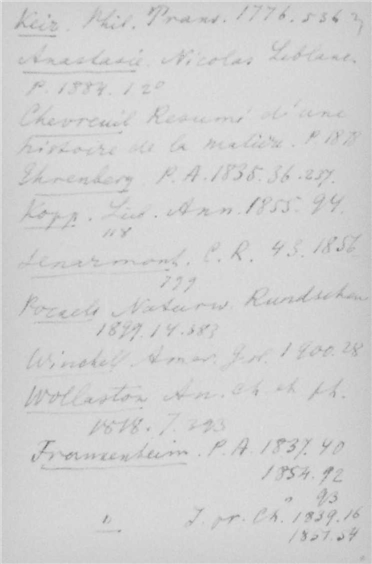 Keir. Phil. Trans. 1776. 536
Anastasie. Nicolas Leblanc.
P. 1884. 12°
Chevreuil Resumé d'une
histoire de la matière. P. 1878
Ehrenberg P. A. 1835. 36. 237.
Kopp. Lieb. Ann. 1855. 94.
118
Senarmont. C. R. 43. 1856
799
Pocaels Naturw. Rundschau
1899. 14. 383
Winchell Amer. Geol. 1900. 28
Wollaston An. ch. et ph.
1818. 7. 293
Frankenheim. P. A. 1837. 40
1854. 92
" 93
" J. pr. Ch. 1839. 16
1851. 54